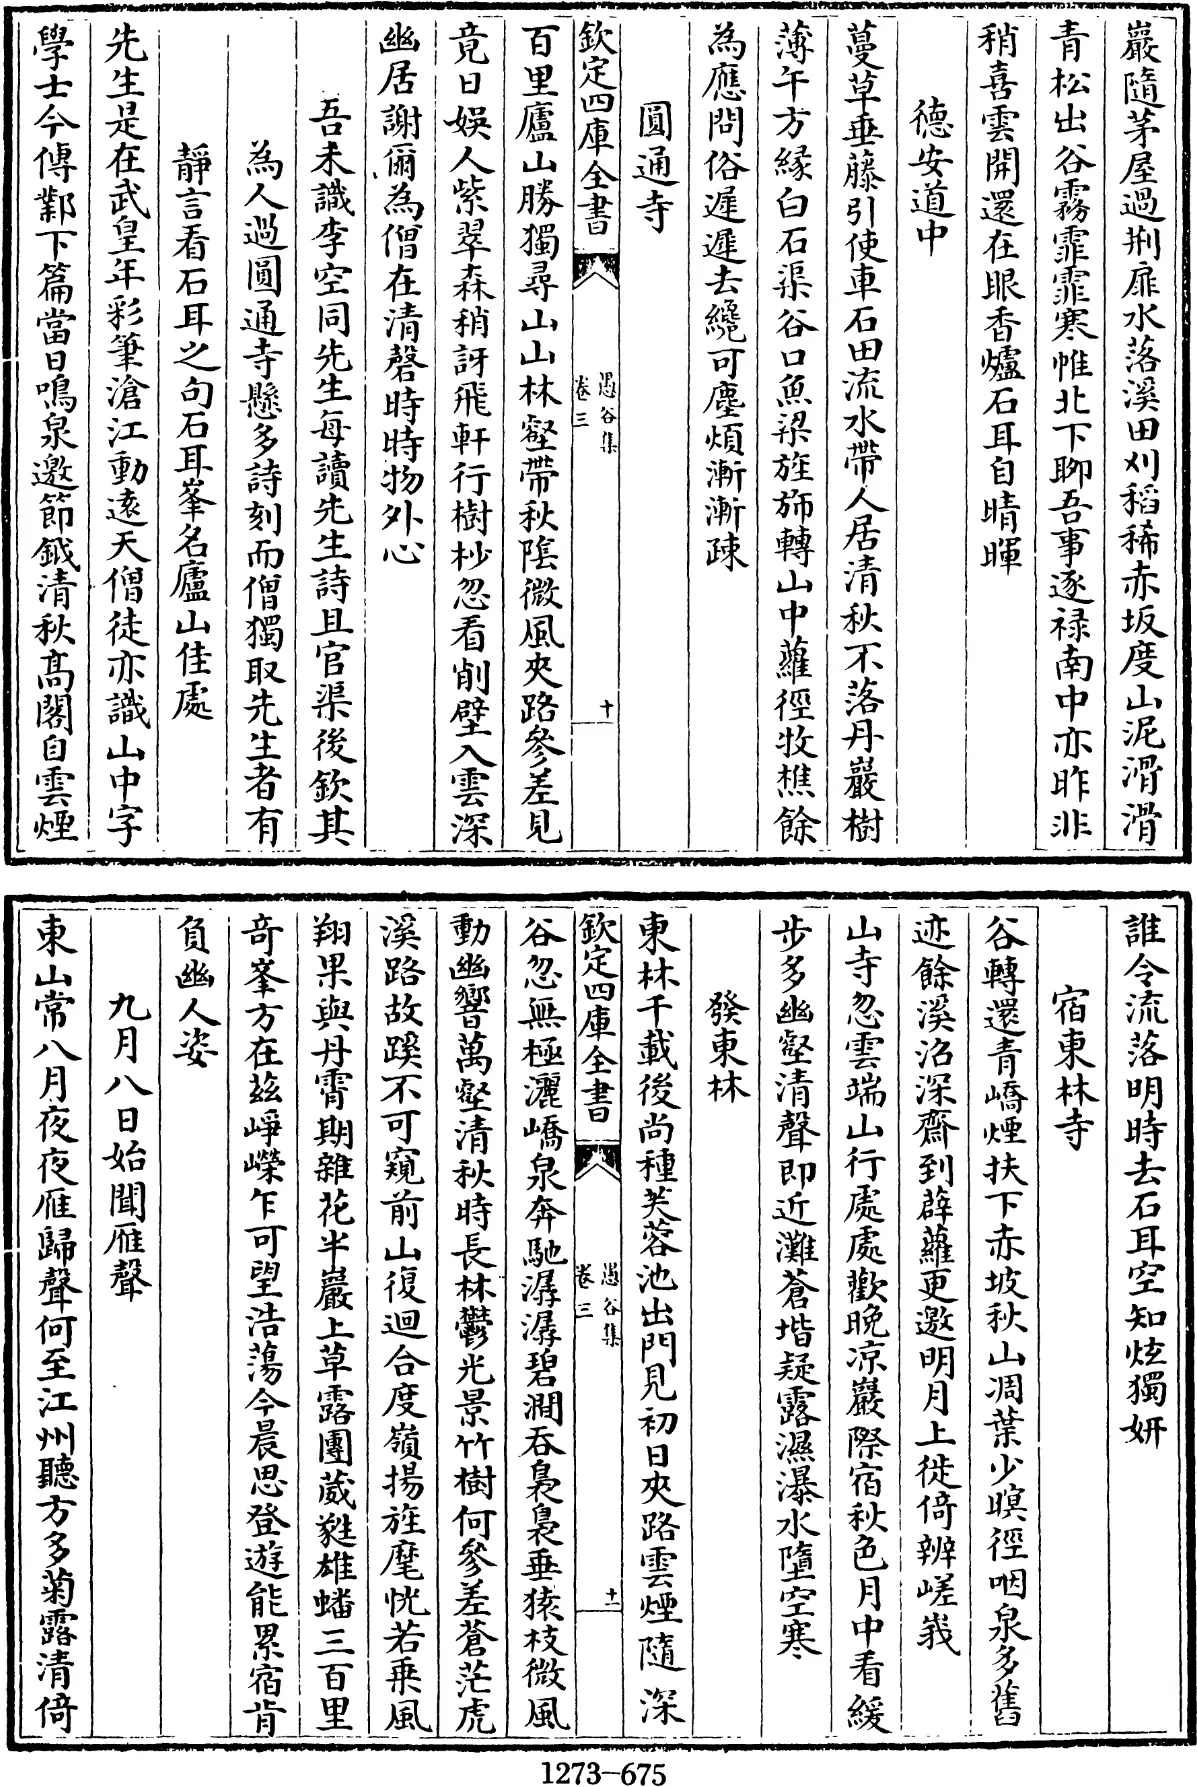 巖隨茅屋過荆扉水落溪田刈稻稀赤坂度山泥滑滑
青松出谷霧霏霏寒帷北下聊吾事逐禄南中亦昨非
稍喜雲開還在眼香爐石耳自晴暉
德安道中
蔓草垂藤引使車石田流水帶人居清秋不落丹巖樹
薄午方緣白石渠谷口魚梁旌斾轉山中蘿徑牧樵餘
為應問俗遲遲去纔可塵煩漸漸疎
圓通寺
欽定四庫全書
愚谷集
卷三
十
百里廬山勝獨尋山山林壑帶秋陰微風夾路參差見
竟日娱人紫翠森稍訝飛軒行樹杪忽看削壁入雲深
幽居謝爾為僧在清磬時時物外心
吾未識李空同先生每讀先生詩且官渠後欽其
為人過圓通寺懸多詩刻而僧獨取先生者有
靜言看石耳之句石耳峯名廬山佳處
先生是在武皇年彩筆滄江動遠天僧徒亦識山中字
學士今傳鄴下篇當日鳴泉邀節鉞清秋髙閣自雲煙
誰令流落明時去石耳空知炫獨妍
宿東林寺
谷轉還青嶠煙扶下赤坡秋山凋葉少暝徑咽泉多舊
迹餘溪沼深齋到薜蘿更邀明月上徙倚辨嵯峩
山寺忽雲端山行處處歡晚凉巖際宿秋色月中看緩
步多幽壑清聲即近灘蒼堦疑露濕瀑水墮空寒
發東林
東林千載後尚種芙蓉池出門見初日夾路雲煙隨深
欽定四庫全書
愚谷集
卷三
十一
谷忽無極灑嶠泉奔馳潺潺碧澗吞裊裊垂猿枝微風
動幽響萬壑清秋時長林鬱光景竹樹何參差蒼茫虎
溪路故蹊不可窺前山復迴合度嶺揚旌麾恍若乗風
翔果與丹霄期雜花半巖上草露團葳蕤雄蟠三百里
奇峯方在兹崢嶸乍可望浩蕩今晨思登遊能累宿肯
負幽人姿
九月八日始聞雁聲
東山常八月夜夜雁歸聲何至江州聽方多菊露清倚
1273-675